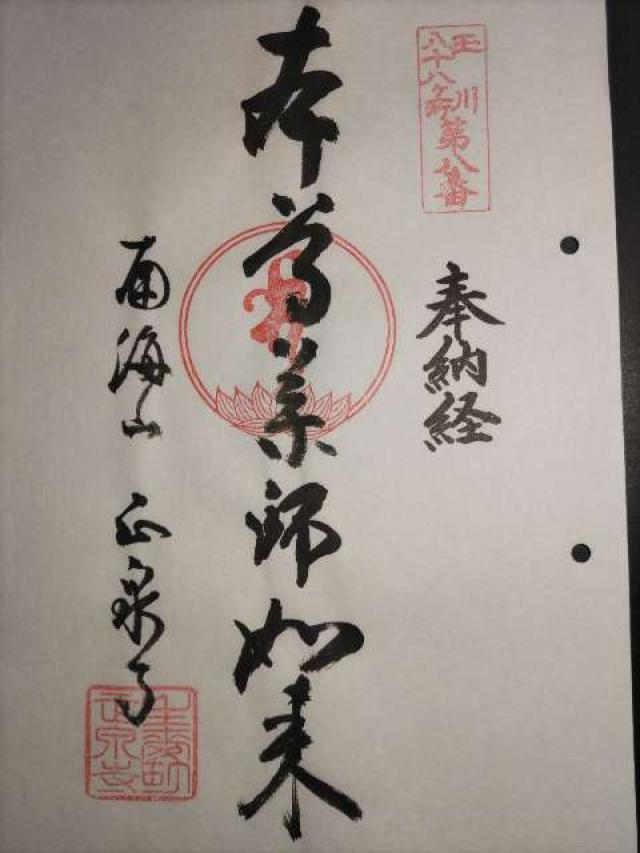 玉川
八十八ヶ所
第八番
奉納経
本尊薬師如来
南海山 正泉寺
生麦町
正泉寺